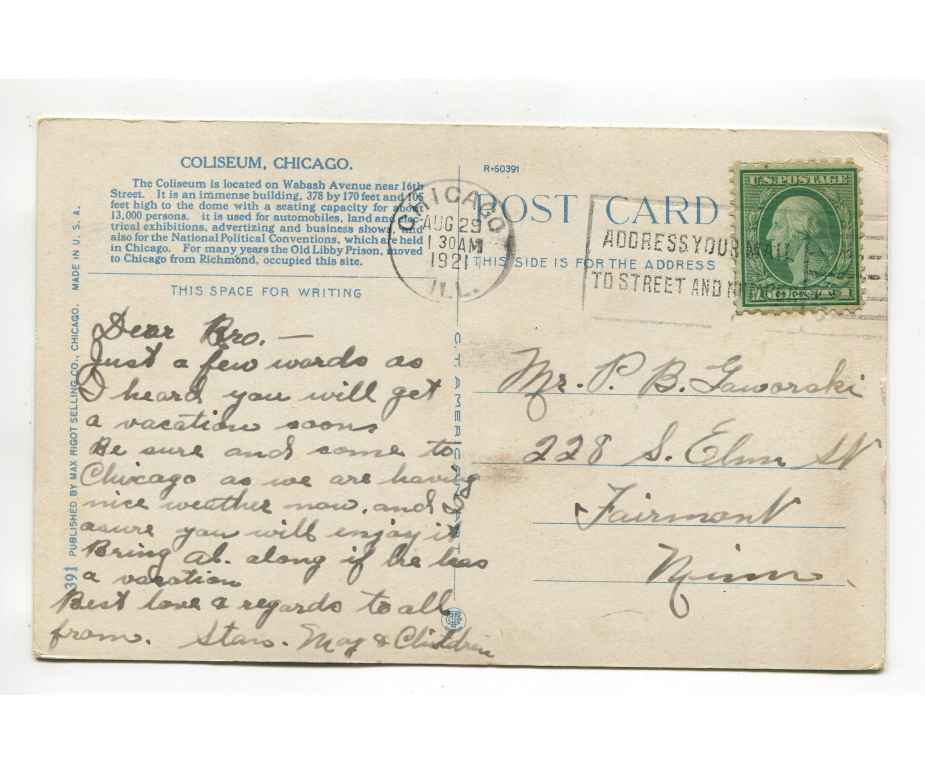 COLISEUM, CHICAGO.
The Coliseum is located on Wabash Avenue near 16th
Street. It is an immense building, 378 by 170 feet and
feet high to the dome with a seating capacity for about
13,000 persons. it is used for automobiles, land and
trical exhibitions, advertising and business shows and
also for the National Political Conventions, which are held
in Chicago. For many years the Old Libby Prison, moved
to Chicago from Richmond, occupied this site.
THIS SPACE FOR WRITING
Dear Bro. —
Just a few words as
I heard you will get
a vacation soon
Be sure and come to
Chicago as we are having
nice weather now. and I
asure you will enjoy it
Bring Al. along if he has
a vacation
Best love & regards to all
from. Stan. May & Children
391 PUBLISHED BY MAX RIGOT SELLING CO., CHICAGO. MADE IN U. S. A.
C. T. AMERICAN ART
R-60391
POST CARD
THIS SIDE IS FOR THE ADDRESS
CHICAGO
AUG 29
1 30 AM
1921
ILL.
ADDRESS YOUR MAIL
TO STREET AND
U.S. POSTAGE
Mr. P. B. Gaworski
228 S. Elm St
Fairmont
Minn.